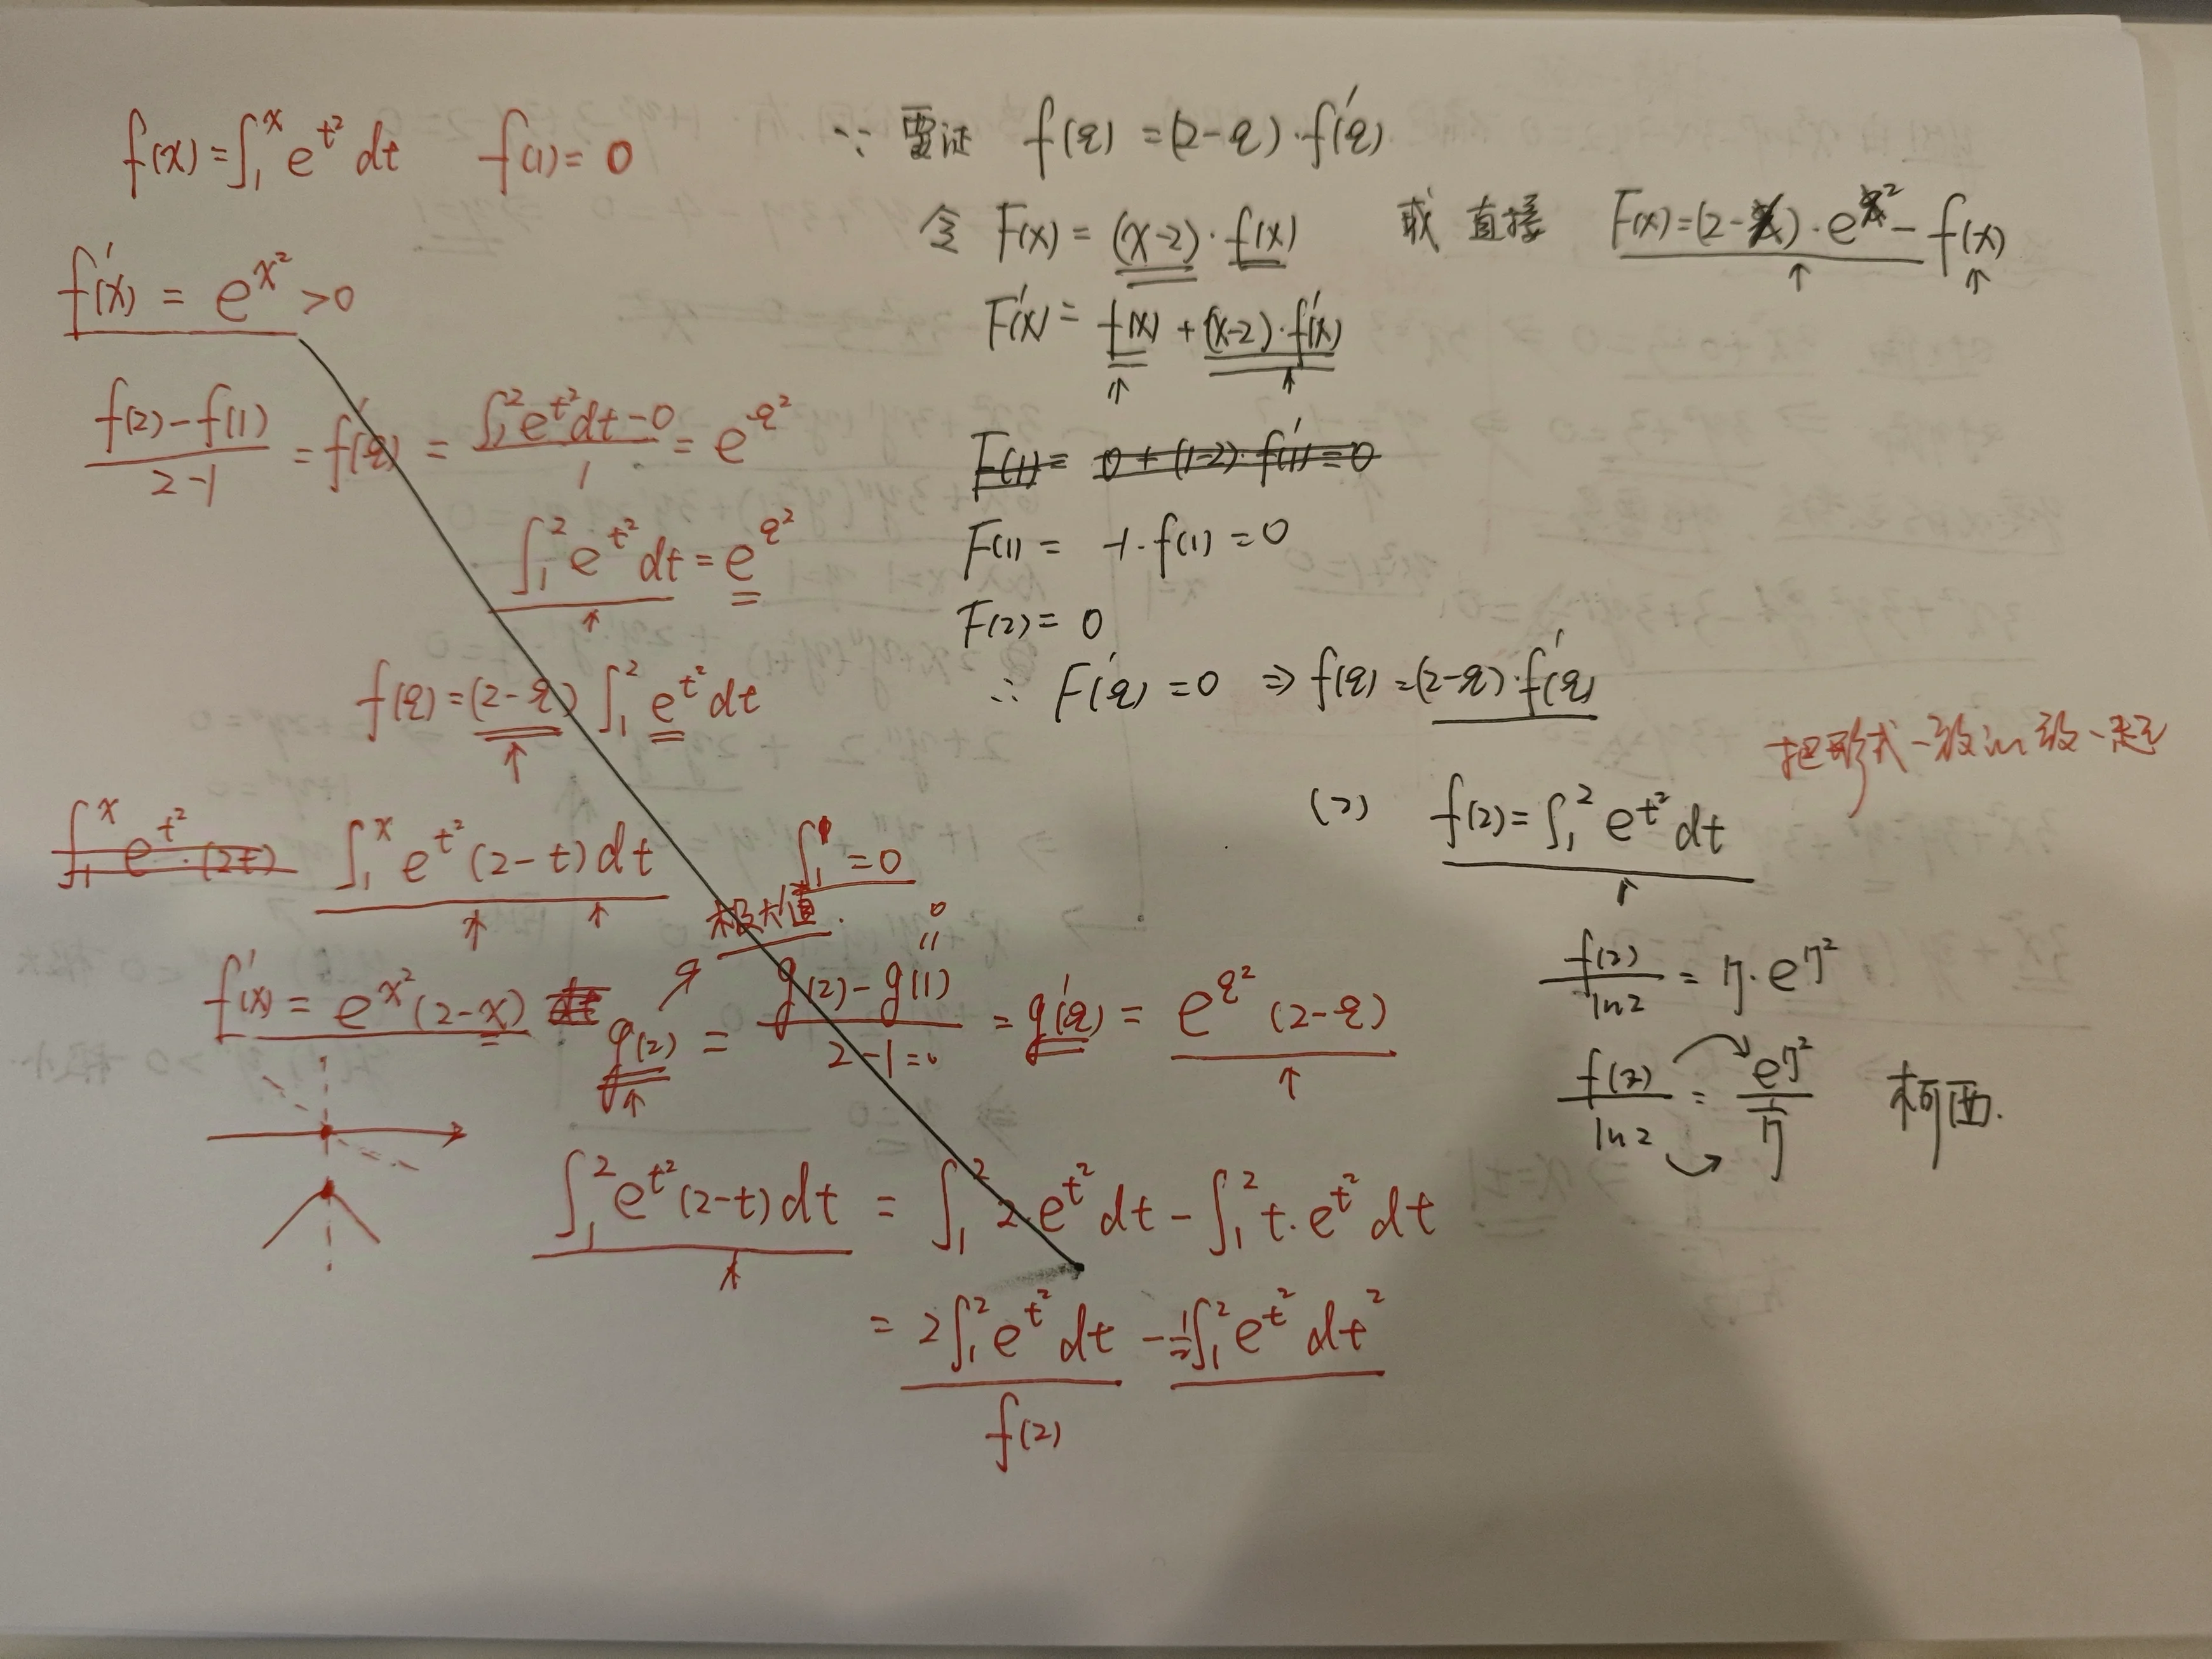 f(x)=∫₁ˣ e^{t²} dt   f(1)=0
f'(x) = e^{x²} >0
(f(2)-f(1))/(2-1) = f'(ξ) = (∫₁² e^{t²}dt-0)/1 = e^{ξ²}
∫₁² e^{t²} dt = e^{ξ²}
f(ξ)=(2-ξ) ∫₁² e^{t²} dt
∫₁ˣ e^{t²}·(2t)   ∫₁ˣ e^{t²}(2-t)dt
∫₁¹ =0
极大值.
f'(x) = e^{x²}(2-x) dt
g(2) = (g(2)-g(1))/(2-1=0) = g'(ξ) = e^{ξ²}(2-ξ)
0
∫₁² e^{t²}(2-t)dt = ∫₁² 2·e^{t²}dt - ∫₁² t·e^{t²}dt
= 2∫₁² e^{t²}dt - ½∫₁² e^{t²} dt²
f(2)
∵ 要证 f(ξ) =(2-ξ)·f'(ξ)
令 F(x) = (x-2)·f(x)   或 直接 F(x)=(2-x)·e^{x²}-f(x)
F'(x) = f(x)+(x-2)·f'(x)
F(1)= 0+(1-2)·f'(1)=0
F(1) = -1·f(1) =0
F(2)= 0
∴ F'(ξ) =0 ⇒ f(ξ) =(2-ξ)·f'(ξ)
把形式一致的放一起
(2) f(2)=∫₁² e^{t²} dt
f(2)/ln2 = η·e^{η²}
f(2)/ln2 = e^{η²}/(1/η)   柯西.